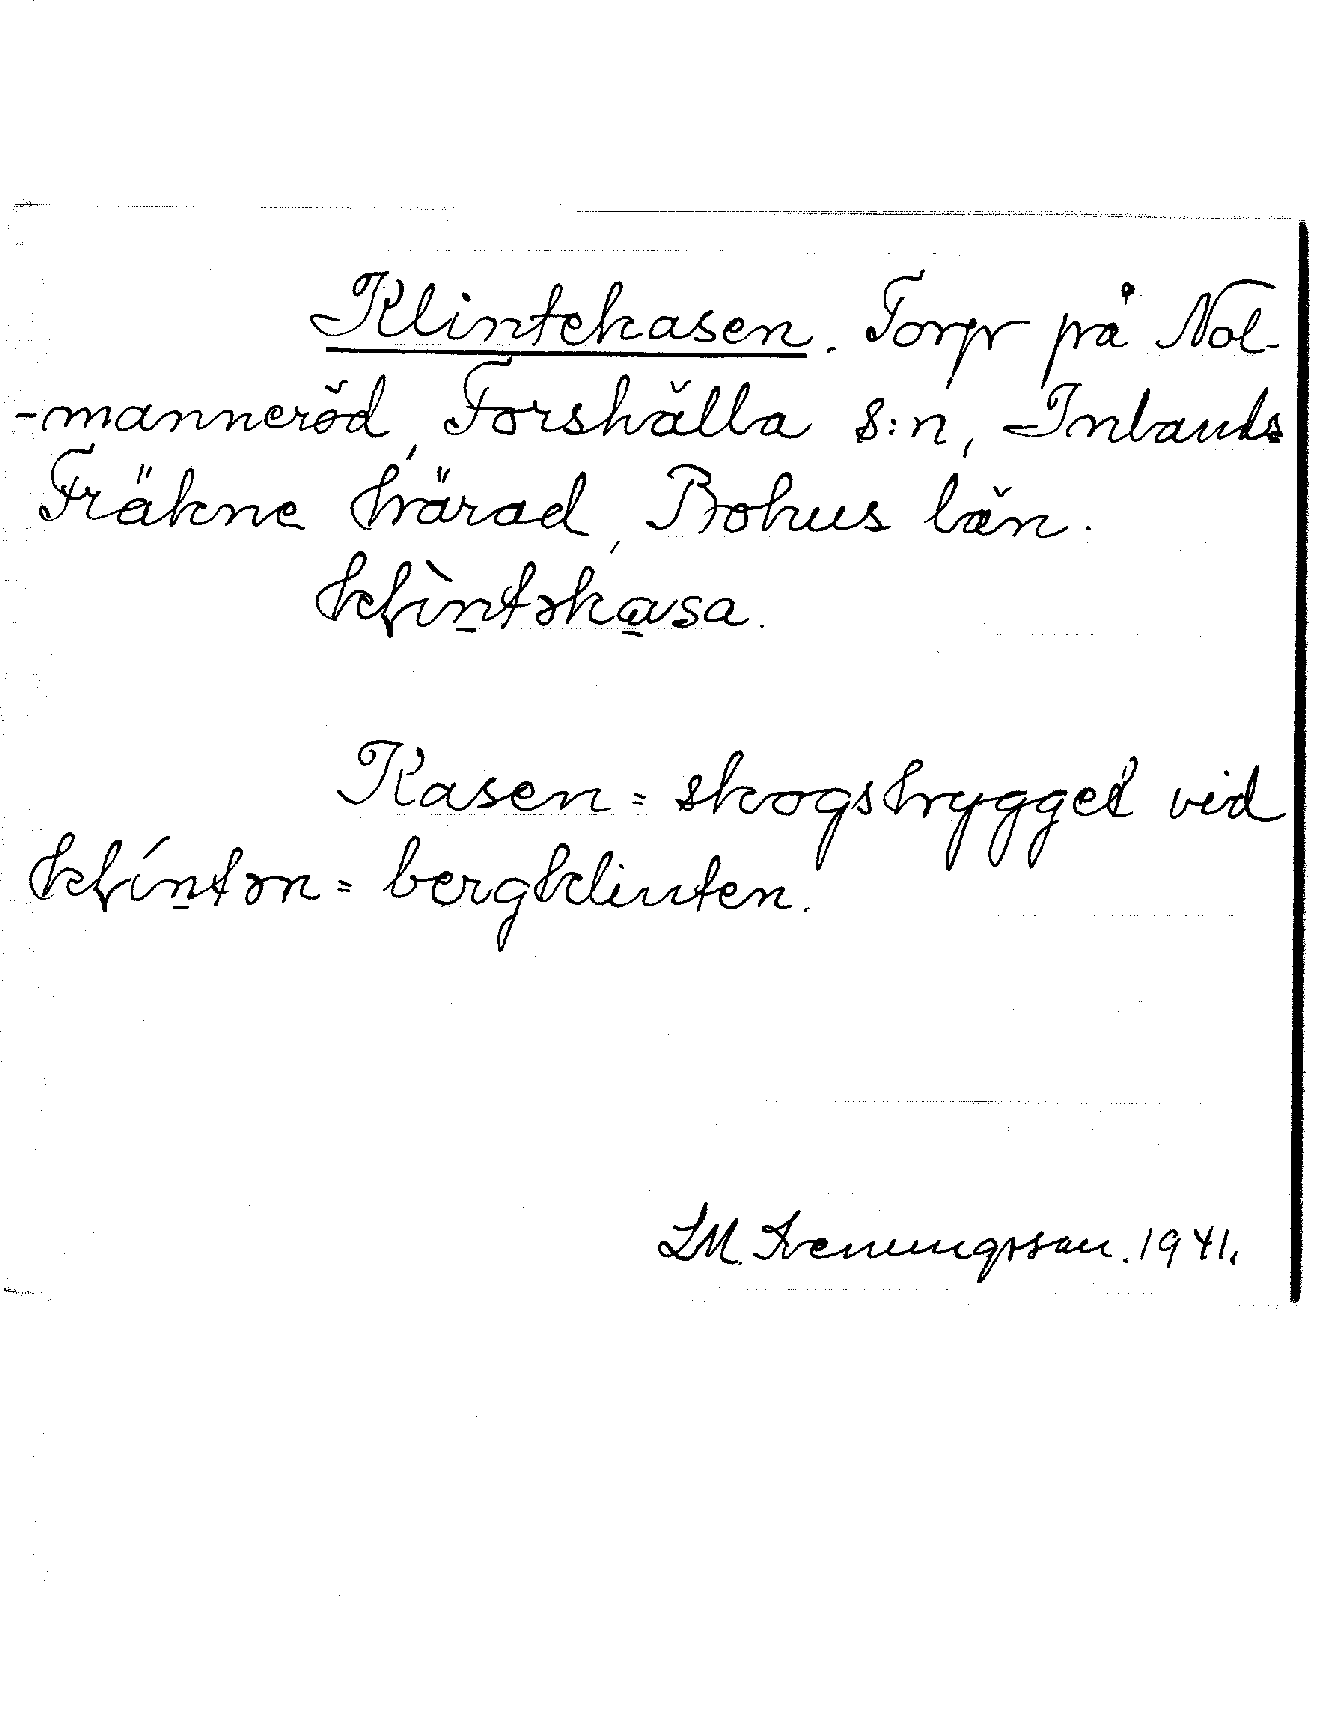 Klintekasen. Torp på Nol-
-manneröd, Forshälla s:n, Inlands
Fräkne härad, Bohus län.
klìntəkasa.
Kasen = skogshygget vid
klíntən = bergklinten.
LM. 1941.